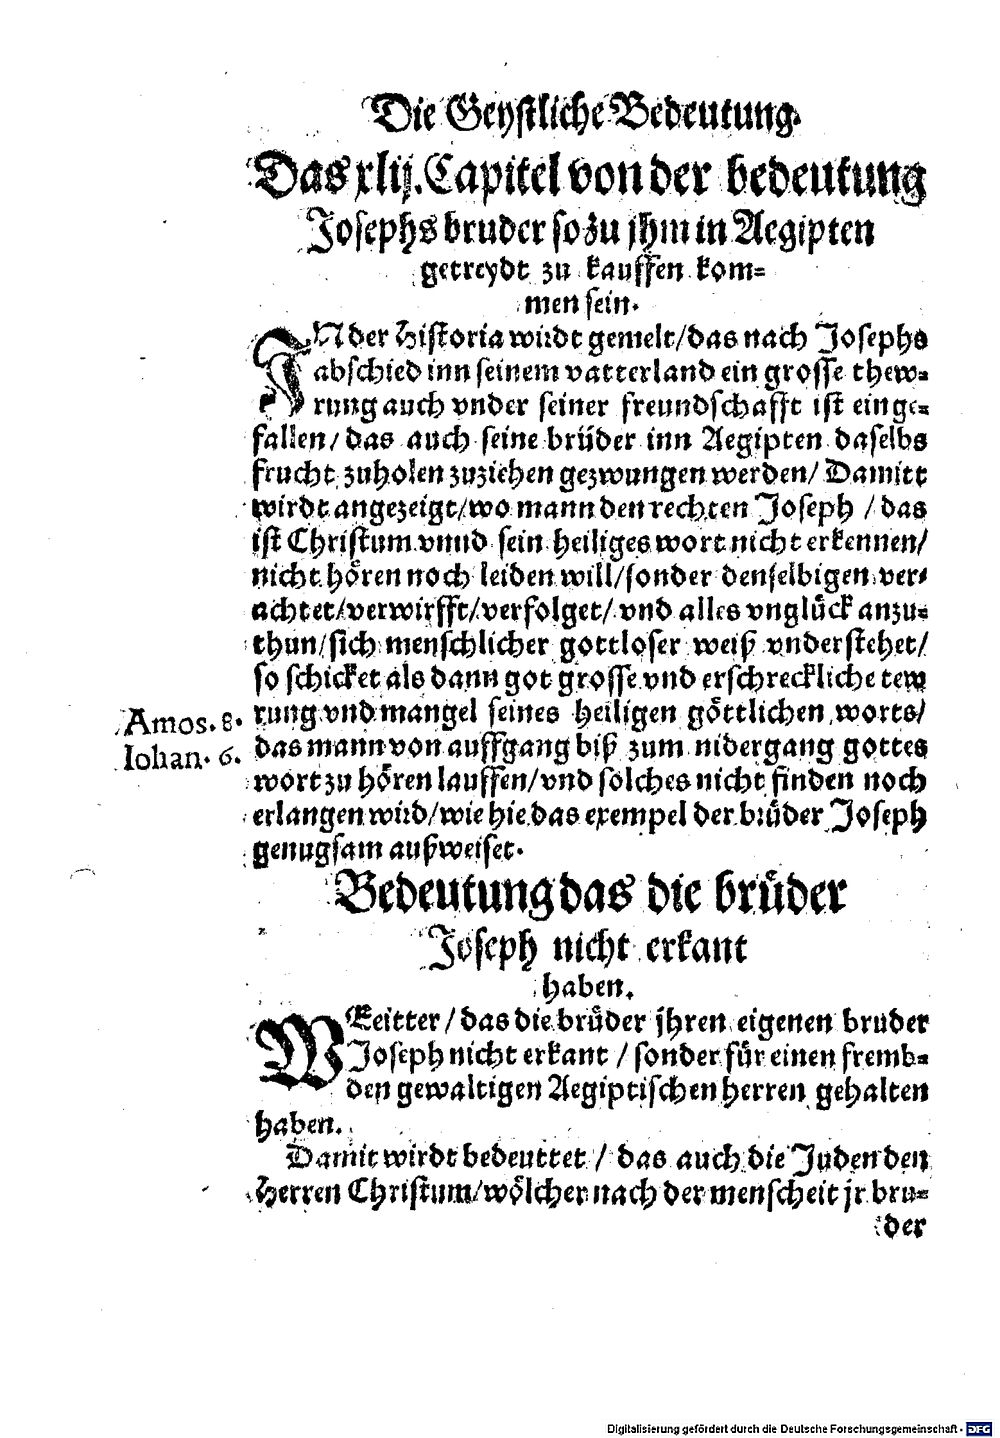 Die Geystliche Bedeutung.
Das xlij. Capitel von der bedeutung
Josephs bruder so zu jhm in Aegipten
getreydt zu kauffen kom=
men sein.
IN der Historia wirdt gemelt/das nach Josephs
abschied inn seinem vatterland ein grosse thew=
rung auch vnder seiner freundschafft ist einge=
fallen/das auch seine brüder inn Aegipten daselbs
frucht zuholen zuziehen gezwungen werden/Damitt
wirdt angezeigt/wo mann den rechten Joseph/das
ist Christum vnnd sein heiliges wort nicht erkennen/
nicht hören noch leiden will/sonder denselbigen ver=
achtet/verwirfft/verfolget/vnd alles vnglück anzu=
thun/sich menschlicher gottloser weiß vnderstehet/
so schicket als dann got grosse vnd erschreckliche tew
Amos. 8. rung vnd mangel seines heiligen göttlichen worts/
Iohan. 6. das mann von auffgang biß zum nidergang gottes
wort zu hören lauffen/vnd solches nicht finden noch
erlangen wird/wie hie das exempel der brüder Joseph
genugsam außweiset.
Bedeutung das die brüder
Joseph nicht erkant
haben.
WEeitter/das die brüder jhren eigenen bruder
Joseph nicht erkant/sonder für einen fremb=
den gewaltigen Aegiptischen herren gehalten
haben.
Damit wirdt bedeuttet/das auch die Juden den
Herren Christum/wölcher nach der menscheit jr bru=
der
Digitalisierung gefördert durch die Deutsche Forschungsgemeinschaft - DFG